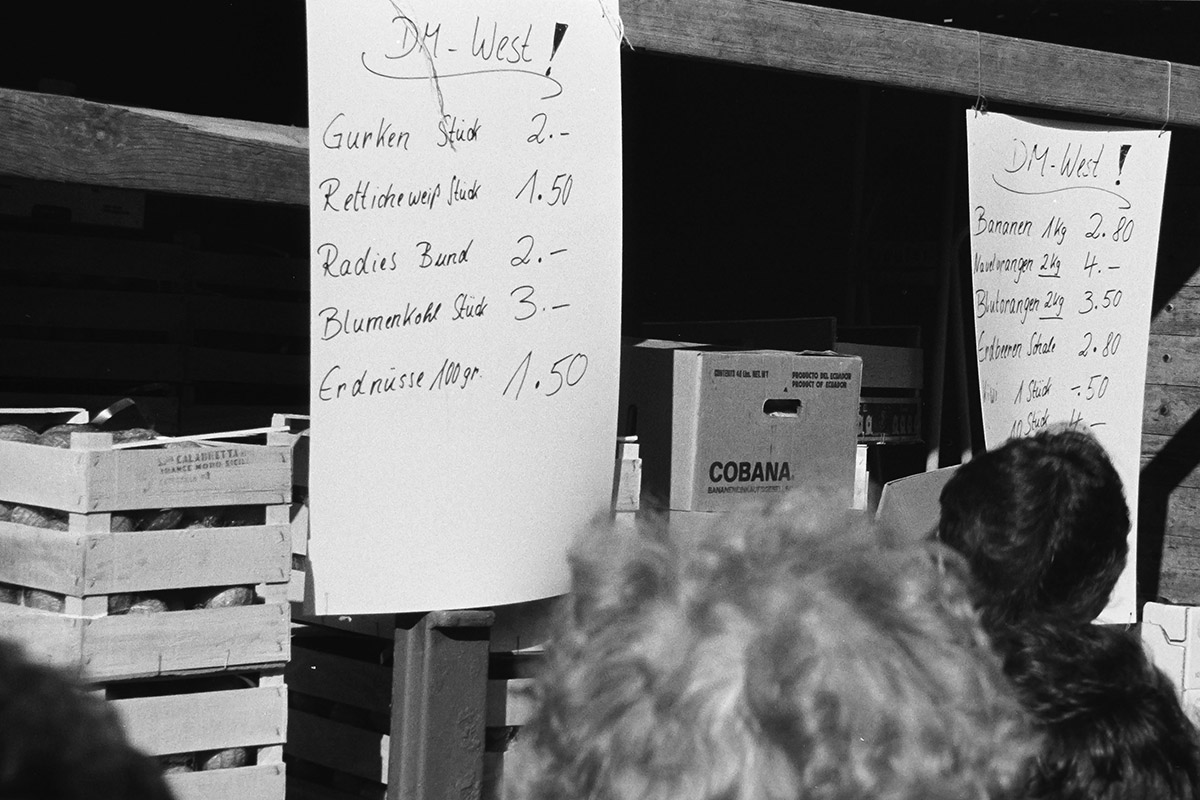 DM-West!
Gurken Stück 2.-
Rettiche weiß Stück 1.50
Radies Bund 2.-
Blumenkohl Stück 3.-
Erdnüsse 100gr. 1.50
DM-West!
Bananen 1kg 2.80
Navelorangen 2kg 4.-
Blutorangen 2kg 3.50
Erdbeeren Schale 2.80
1 Stück -.50
10 Stück 4.-
CONTENTS 40 Lbs. NET. WT
PRODUCTO DEL ECUADOR
PRODUCT OF ECUADOR
COBANA
CALABRETTA